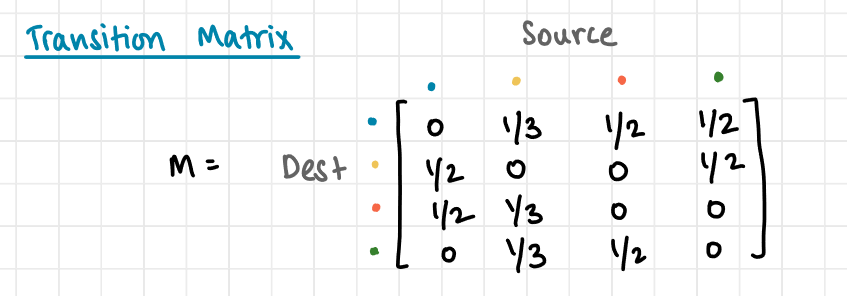 Transition Matrix
Source
0 1/3 1/2 1/2
M = Dest 1/2 0 0 1/2
1/2 1/3 0 0
0 1/3 1/2 0